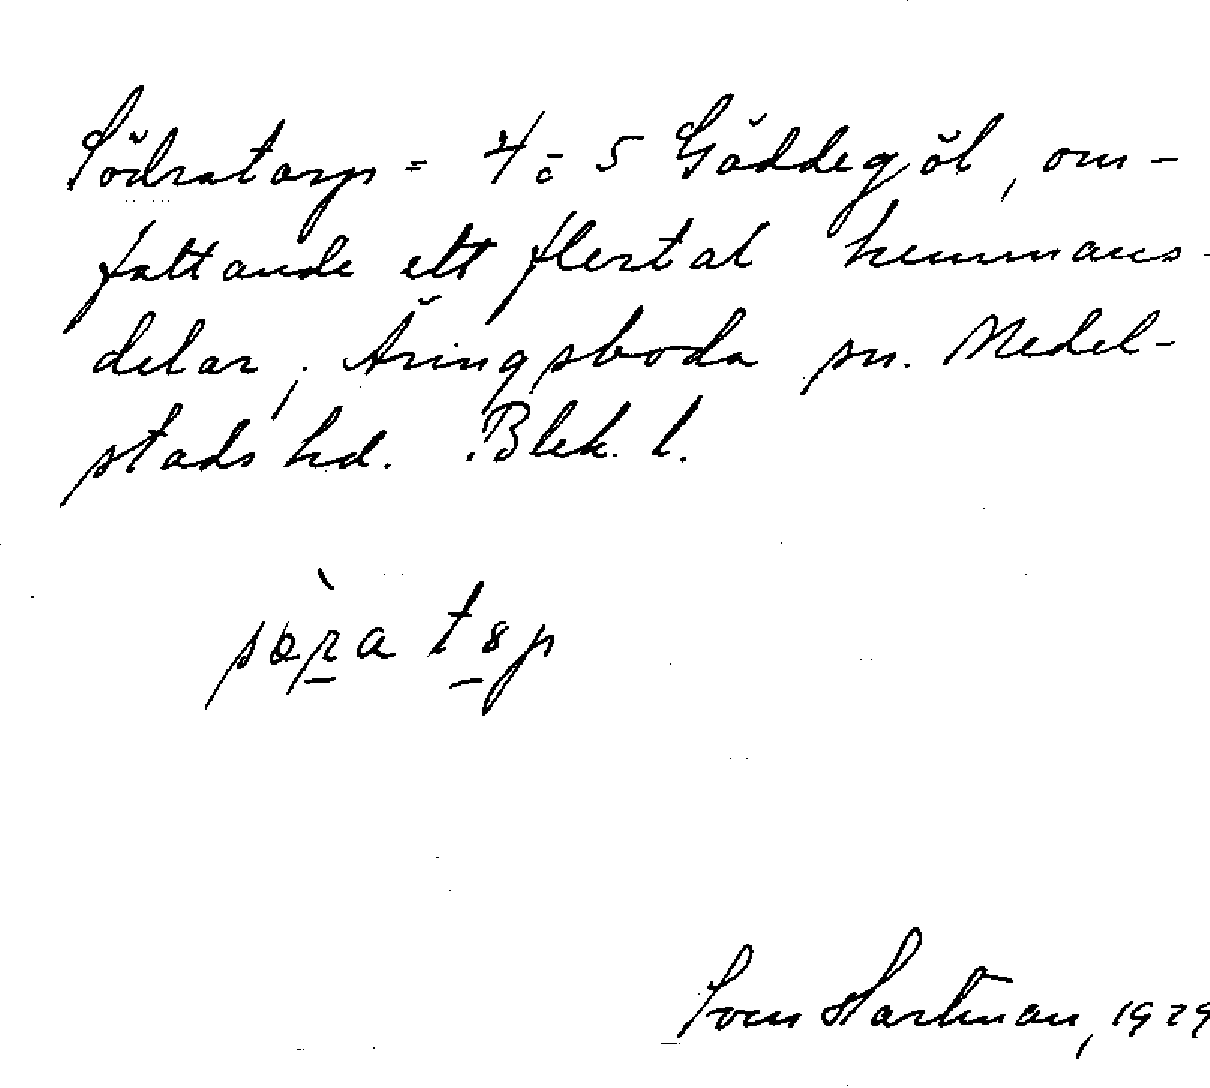 Södratorp = 4 o 5 Gäddegöl, om-
fattande ett flertal hemmans-
delar, Äringsboda sn. Medel-
stads hd. Blek. l.
Sven Hartman, 1929